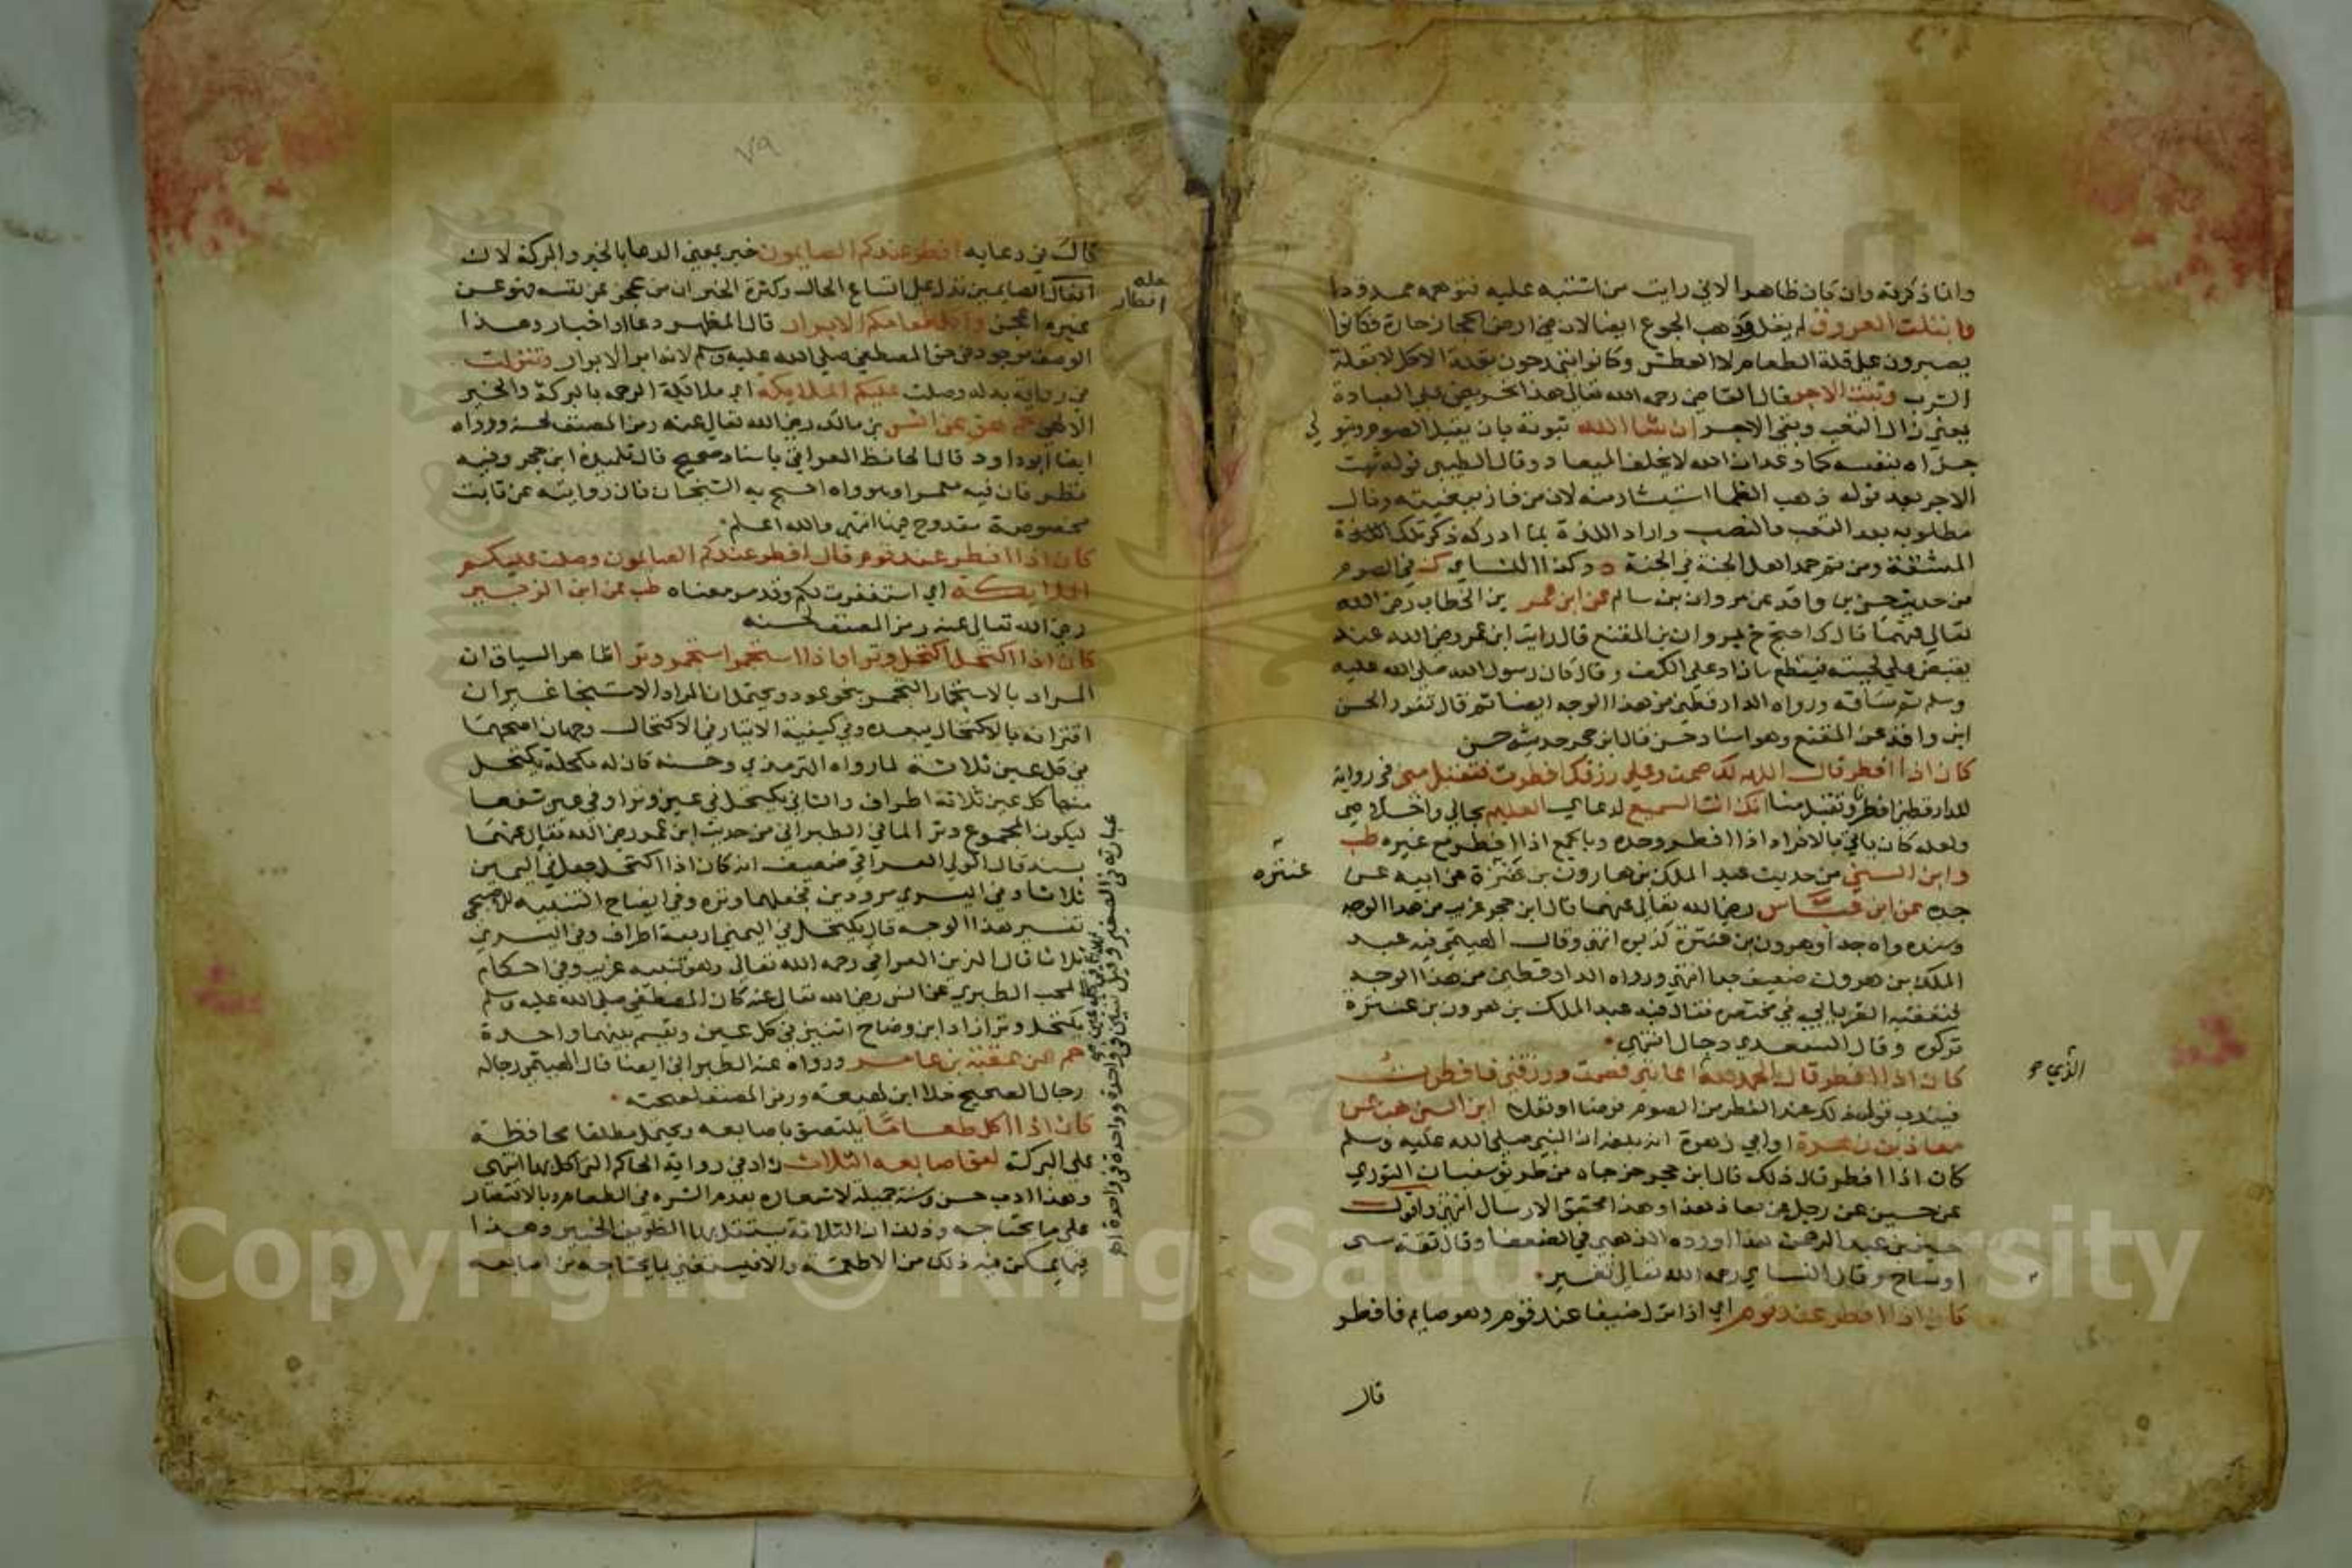 وانما ذكرته وان كان ظاهرا لاني رايت من اشتبه عليه فتوهمه ممدودا
وابتلت العروق لم يقل وذهب الجوع ايضا لان في ارض الحجاز حارة فكانوا
يصبرون على قلة الطعام لا العطش وكانوا يتمدحون بقلة الاكل لا بقلة
الشرب وثبت الاجر قال القاضي رحمه الله تعالى هذا تحريض على العبادة
يعني زال التعب وبقي الاجر ان شا الله ثبوته بان يقبل الصوم ويتولى
جزاه بنفسه كما وعد ان الله لا يخلف الميعاد وقال الطيبي قوله ثبت
الاجر بعد قوله ذهب الظما استبشار منه لان من فاز ببغيته ونال
مطلوبه بعد التعب والنصب واراد اللذة بما ادركه ذكر تلك
المشقة ومن ثم حمد اهل الجنة في الجنة د وكذا النساي ك في الصوم
من حديث حسين بن واقد عن مروان بن سالم عن ابن عمر بن الخطاب رضي الله
تعالى عنهما قال ك احتج خ بمروان بن المقنع قال رايت ابن عمر رضي الله عنه
يقبض على لحيته فيقطع ما زاد على الكف وقال كان رسول الله صلى الله عليه
وسلم ثم ساقه ورواه الدارقطني من هذا الوجه ايضا ثم قال تفرد الحسين
ابن واقد عن المقنع وهو اسناد حسن قال ابن حجر حديث حسن
كان اذا افطر قال اللهم لك صمت وعلى رزقك افطرت فتقبل مني في رواية
للدارقطني افطرنا وتقبل منا انك انت السميع لدعاي العليم بحالي واخلاصي
ولعله كان ياتي بالافراد اذا افطر وحده وبالجمع اذا افطر مع غيره طب
وابن السني من حديث عبد الملك بن هارون بن عنترة عن ابيه عن
عنتره
جده عن ابن عباس رضي الله تعالى عنهما قال ابن حجر غريب من هذا الوجه
وسنده واه جدا وهرون بن عنترة كذبن انتهى وقال الهيثمي فيه عبد
الملك بن هرون ضعيف جدا انتهى ورواه الدارقطني من هذا الوجه
فتعقبه الغرياني في مختصره فقال فيه عبد الملك بن هرون بن عنترة
تركوه وقال السعدي دجال انتهى
كان اذا افطر قال الحمد لله اعانني فصمت ورزقني فافطرت
الذي صح
فيندب قول ذلك عند الفطر من الصوم فرضا او نفلا ابن السني هب عن
معاذ بن زهرة او ابي زهرة انه بلغه ان النبي صلى الله عليه وسلم
كان اذا افطر قال ذلك قال ابن حجر خرجاه من طريق سفيان الثوري
عن حسين عن رجل عن معاذ هذا وهذا محقق الارسال انتهى واقول
حسين بن عبد الرحمن هذا اورده الذهبي في الضعفا وقال ثقة نسي
او شاخ وقال النساي رحمه الله تعالى تغير
كان اذا افطر عند قوم اي اذا نزل ضيفا عند قوم وهو صايم فافطر
قال
٧٩
قال في دعايه افطر عندكم الصايمون خبر بمعنى الدعا بالخير والبركة لان
افعال الصايمين تدل على اتساع الحال وكثرة الخير اذ من عجز عن نفسه فهو عن
لعله افطار
غيره اعجز واكل طعامكم الابرار قال المظهر دعا او اخبار وهذا
الوصف موجود في حق المصطفى صلى الله عليه وسلم لانه ابر الابرار وتنزلت
في رواية بدله وصلت عليكم الملايكة اي ملائكة الرحمة بالبركة والخير
الالهي حم هق عن انس بن مالك رضي الله تعالى عنه رمز المصنف لحسنه ورواه
ايضا ابو داود قال الحافظ العراقي باسناد صحيح قال تلميذه ابن حجر وفيه
نظر فان فيه معمرا وهو وان احتج به الشيخان فان روايته عن ثابت
بخصوصه مقدوح فيها انتهى والله اعلم
كان اذا افطر عند قوم قال افطر عندكم الصايمون وصلت عليكم
الملايكة اي استغفرت لكم وقد مر معناه طب عن ابن الزبير
رضي الله تعالى عنه رمز المصنف لحسنه
كان اذا اكتحل اكتحل وترا واذا استجمر استجمر وترا ظاهر السياق ان
المراد بالاستجمار التبخر بنحو عود ويحتمل ان المراد الاستنجا غير ان
اقترانه بالاكتحال يبعده وفي كيفية الايتار في الاكتحال وجهان اصحهما
في كل عين ثلاثة لما رواه الترمذي وحسنه كان له مكحلة يكتحل
منها كل عين ثلاثة اطراف والثاني يكتحل في عين وترا وفي عين شفعا
ليكون المجموع وترا لما في الطبراني من حديث ابن عمر رضي الله تعالى عنهما
بسند قال الولي العراقي ضعيف انه كان اذا اكتحل جعل في اليمين
ثلاثا وفي اليسرى مرودين فجعلهما وتره وفي ايضاح التنبيه للاصبحي
تفسير هذا الوجه قال يكتحل في اليمنى اربعة اطراف وفي اليسرى
ثلاثا قال الزين العراقي رحمه الله تعالى وهو تقييد غريب وفي احكام
المحب الطبري عن انس رضي الله تعالى عنه كان المصطفى صلى الله عليه وسلم
يكتحل وترا زاد ابن وضاح اثنين في كل عين ويقسم بينهما واحدة
حم عن عقبة بن عامر ورواه عنه الطبراني ايضا قال الهيثمي رجاله
رجال الصحيح خلا ابن لهيعة ورمز المصنف لصحته
كان اذا اكل طعاما يلتصق باصابعه ويحتمل مطلقا محافظة
على البركة لعق اصابعه الثلاث زاد في رواية الحاكم التي اكل بها انتهى
وهذا ادب حسن وسنة جميلة لاشعاره بعدم الشره في الطعام وبالاقتصار
على ما يحتاجه وذلك ان الثلاثة يستقل بها الظريف الخبير وهذا
فيما يمكن فيه ذلك من الاطعمة والا فيستعين بما يحتاجه من اصابعه
Copyright © King Saud University
1957